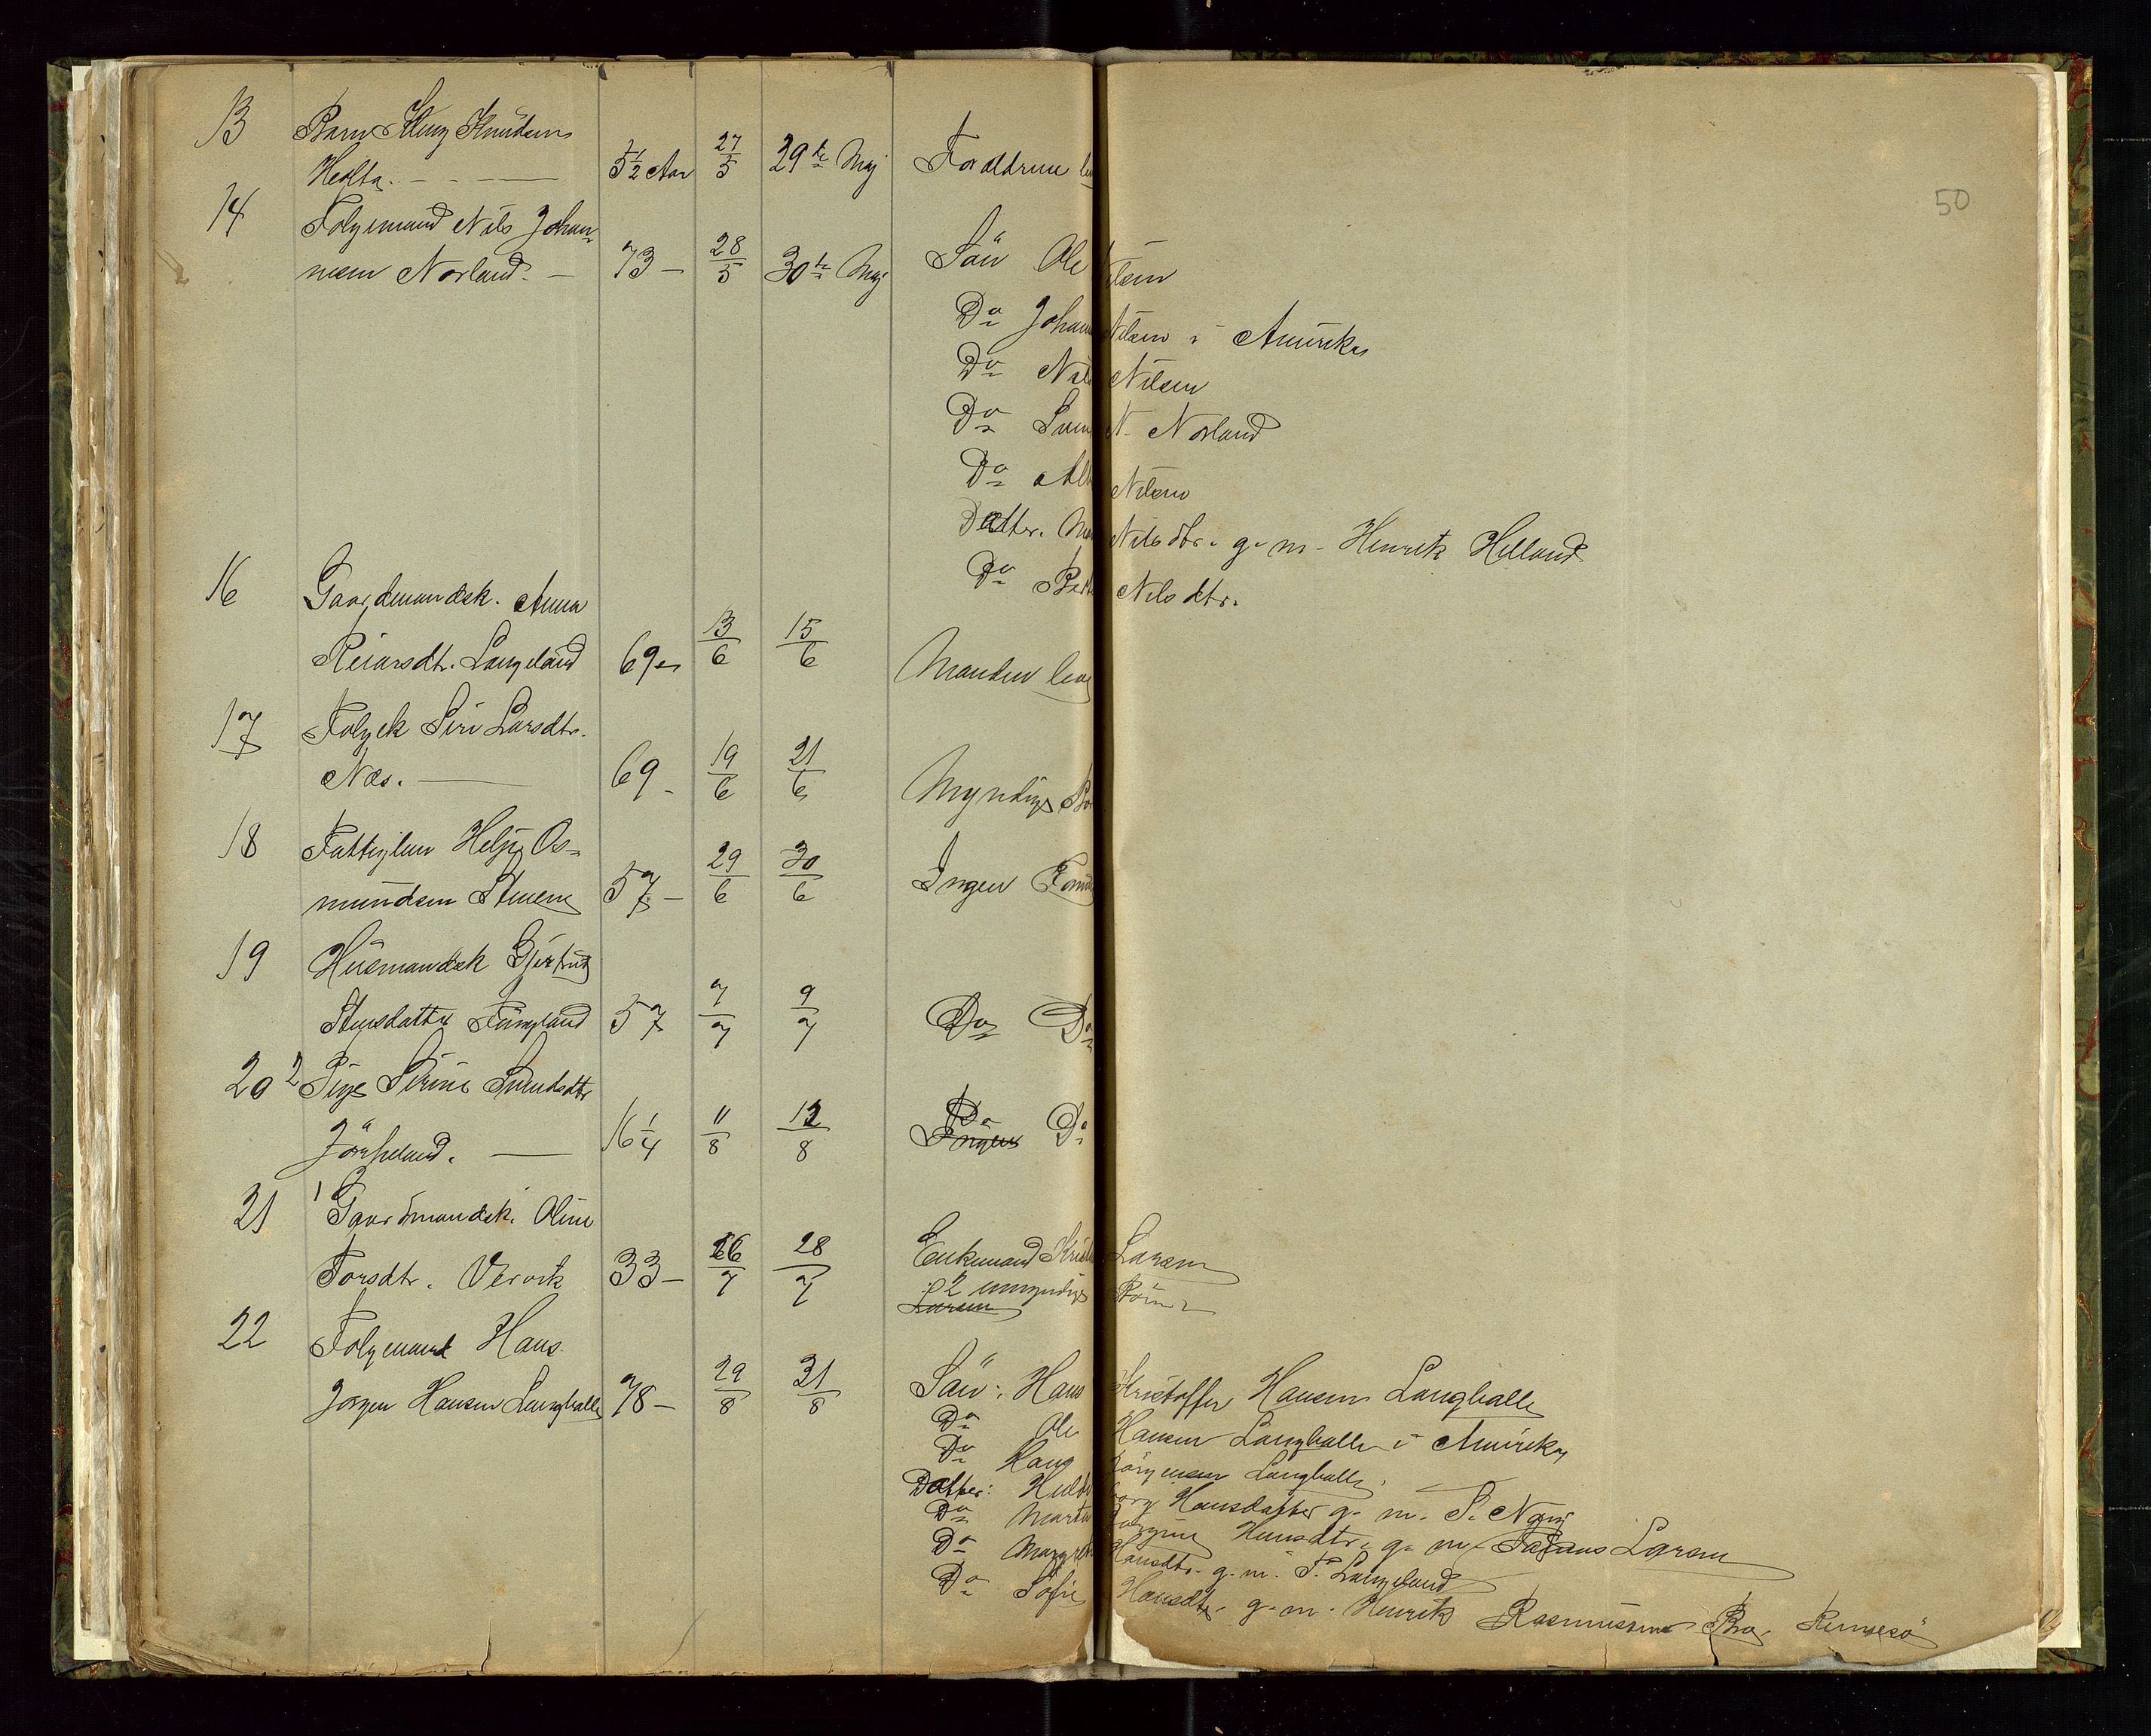 50
13 Barn Helnz Knudsen
Holta. 5 1/2 Aar 27/5 29de Maj Forældrene
14 Følgemand Nils Johan-
nesen Norland. 73 28/5 30te Maj Sön Ole Nilsen
Do Johan Nilsen i Amerika
Do Nils Nilsen
Do Sven N. Norland
Do Nilsen
Datter. Nilsdtr. g. m. Henrik Helland
Do Nilsdtr.
16 Gaardmandsk. Anna
Reiarsdtr. Langeland 69 13/6 15/6 Manden
17 Følgek Siri Larsdtr.
Næs. 69 19/6 21/6 Myndige
18 Fattiglem Helge Os-
mundsen Stuene 57 29/6 30/6 Ingen
19 Husmandsk Gjertrud
Stensdatter Fungland 57 7/7 9/7 Do Do
20 2 Pige Serine Svendsdtr
Jörpeland. 16 1/4 11/8 12/8 Do Ingen Do
21 1 Gaardmandsk. Oline
Torsdtr. Vervik 33 26/7 28/7 Enkemand Larsen
2 umyndige Börn
Larsen
22 Følgemand Hans
Jørgen Hansen Langballe 78 29/8 31/8 Sön: Hans Kristoffer Hansen Langballe
Do Ole Hansen Langballe i Amerika
Do Hans Jörgensen Langballe,
Datter: Hansdatter g. m. S. Næss
Do Marta Jørgine Hansdtr. g. m. Larsen
Do Margrete Hansdtr. g. m. T. Langeland
Do Sofie Hansdtr. g. m. Henrik Rasmussen Bro, Rennesö